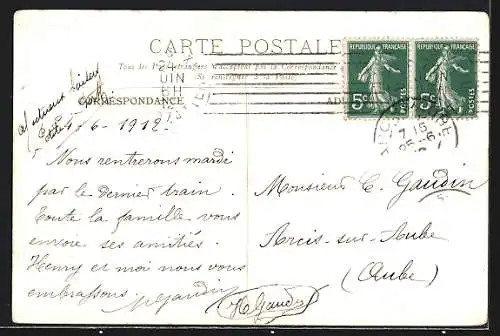 CARTE POSTALE
Tous les Pays étrangers n'acceptent pas la Correspondance
au Recto
CORRESPONDANCE
24
JUIN
6H
REPUBLIQUE FRANÇAISE
5c
POSTES
REPUBLIQUE FRANÇAISE
5c
POSTES
7 15
25-6
/6 1912.
Nous rentrerons mardi
par le dernier train.
Toute la famille vous
envoie ses amitiés.
Henry et moi nous vous
embrassons. MGaudin
HGaudin
Monsieur C. Gaudin
Arcis-sur-Aube
(Aube)